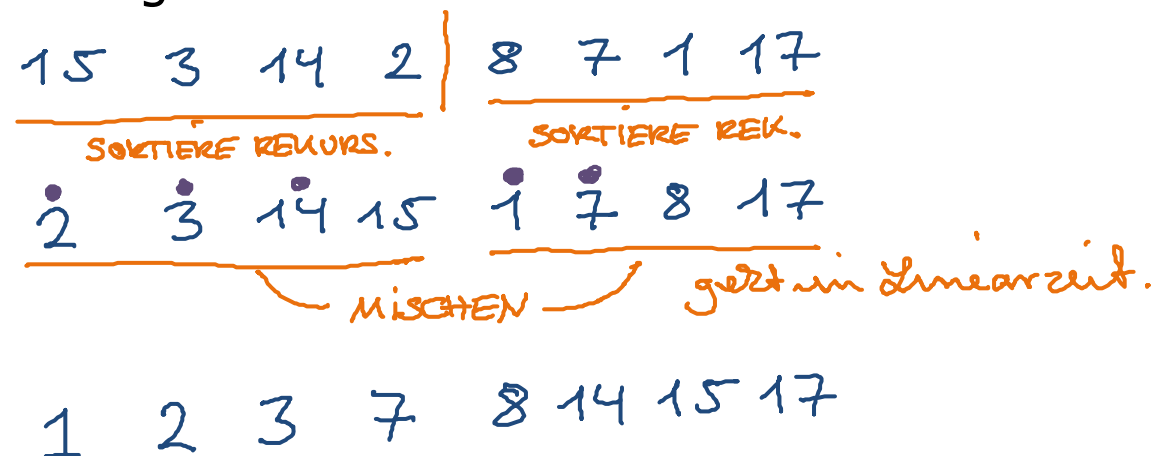 15 3 14 2 | 8 7 1 17
SORTIERE REKURS. SORTIERE REK.
2 3 14 15 1 7 8 17
MISCHEN geht in Linearzeit.
1 2 3 7 8 14 15 17